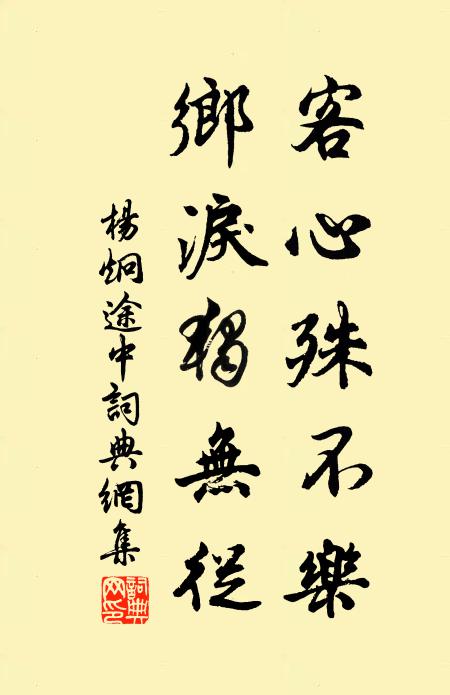 客心殊不樂
鄉淚獨無從
楊炯途中詞典網集
詞典網印